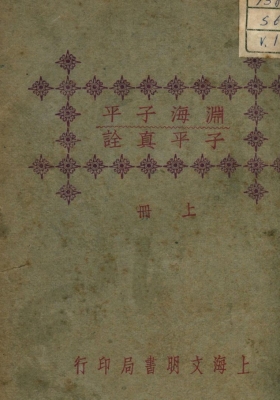 淵海子平
子平真詮
上冊
上海文明書局印行
S6
V.1